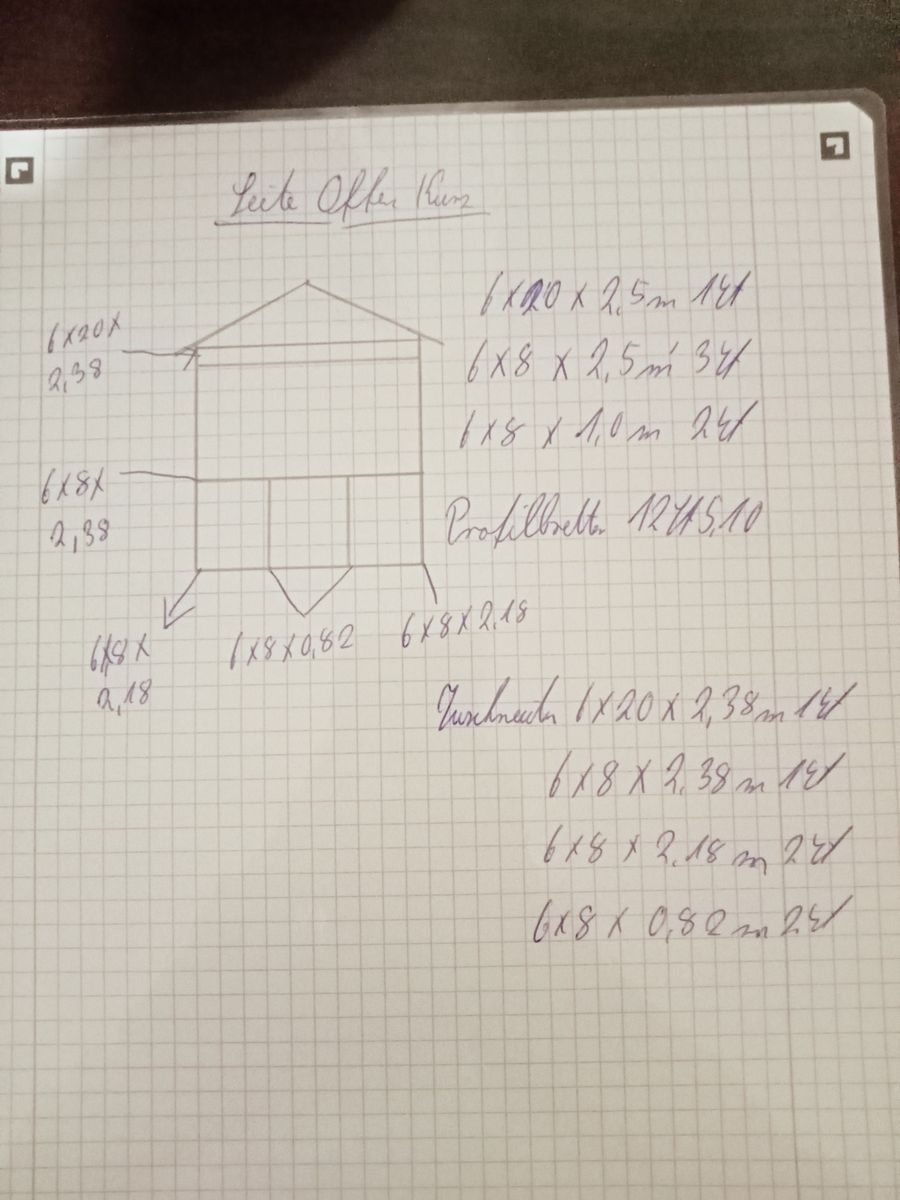 Seite Offen Kurz
6x20x
2,38
6x8x
2,38
6x8x
2,18
6x8x0,82
6x8x2,18
6x20 x 2,5m 1St
6x8 x 2,5m 3St
6x8 x 1,0m 2St
Profilbretter 12St 5,10
Zuschneiden 6x20 x 2,38m 1St
6x8 x 2,38m 1St
6x8 x 2,18m 2St
6x8 x 0,82m 2St